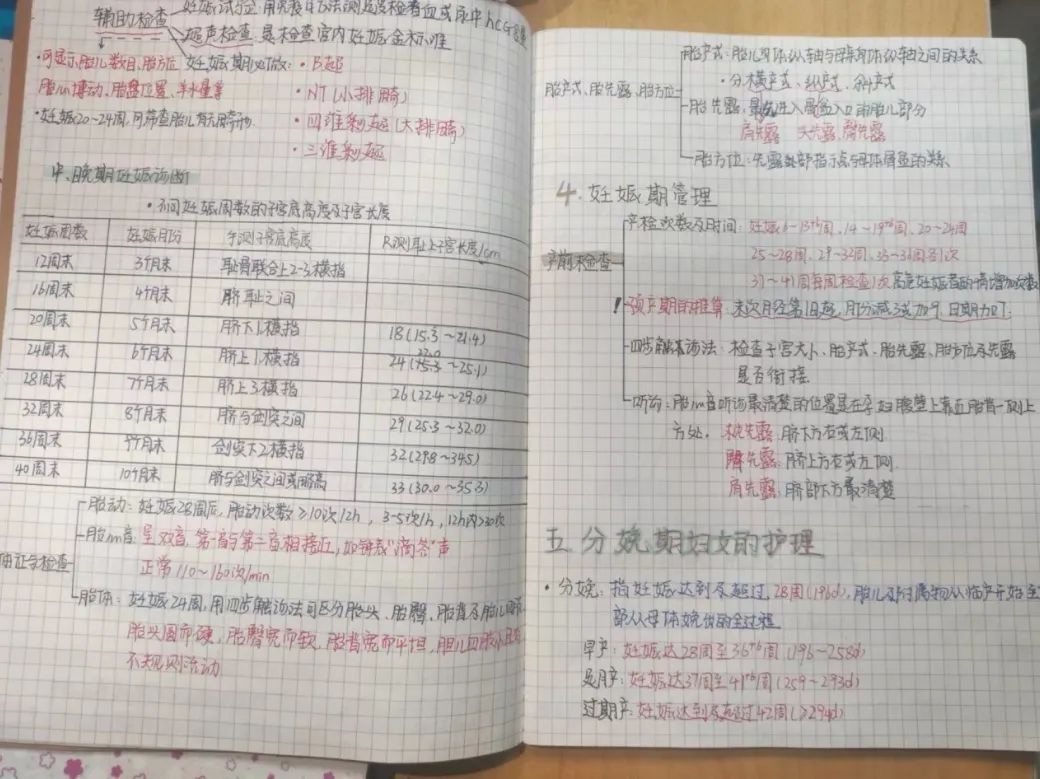 辅助检查
妊娠试验:用
检查血或尿中hCG
超声检查:是检查宫内妊娠金标准
·可显示胎儿数目、胎方位
胎心搏动、胎盘位置、羊水量等
·妊娠20~24周,可筛查胎儿有无畸形
妊娠期必做:·B超
·NT(小排畸)
·四维彩超(大排畸)
·三维彩超
中、晚期妊娠诊断
·不同妊娠周数的子宫底高度及子宫长度
妊娠周数 妊娠月份 手测子宫底高度 尺测耻上子宫长度/cm
12周末 3个月末 耻骨联合上2~3横指
16周末 4个月末 脐耻之间
20周末 5个月末 脐下1横指 18(15.3~21.4)
24周末 6个月末 脐上1横指 24(~25.1)
28周末 7个月末 脐上3横指 26(22.4~29.0)
32周末 8个月末 脐与剑突之间 29(25.3~32.0)
36周末 9个月末 剑突下2横指 32(29.8~34.5)
40周末 10个月末 脐与剑突之间或略高 33(30.0~35.3)
体征与检查
胎动:妊娠28周后,胎动次数≥10次/2h,3-5次/h,12h内>30次
胎心音:呈双音,第一音与第二音相接近,如钟表"滴答"声
正常110~160次/min
胎体:妊娠24周,用四步触诊法可区分胎头、胎臀、胎背及胎儿四肢
胎头圆而硬,胎臀宽而软,胎背宽而平坦,胎儿四肢小且有
不规则活动
胎产式、胎先露、胎方位
胎产式:胎儿身体纵轴与母亲身体纵轴之间的关系
·分横产式、纵产式、斜产式
胎先露:最先进入骨盆入口的胎儿部分
肩先露 头先露、臀先露
胎方位:先露部指示点与母体骨盆的关系
4.妊娠期管理
产前检查
产检次数及时间:妊娠6~13⁺⁶周、14~19⁺⁶周、20~24周
25~28周、29~32周、33~36周各1次
37~41周每周检查1次 高危妊娠者酌情增加次数
!预产期的推算:末次月经第1日起,月份减3或加9,日期加7.
四步触诊法:检查子宫大小、胎产式、胎先露、胎方位及先露
是否衔接
听诊:胎心音听诊最清楚的位置是在孕妇腹壁上靠近胎背一侧上
方处,枕先露:脐下方右或左侧
臀先露:脐上方右或左侧
肩先露:脐部下方最清楚
五.分娩期妇女的护理
·分娩:指妊娠达到及超过28周(196d),胎儿及附属物从临产开始至
部从母体娩出的全过程
早产:妊娠达28周至36⁺⁶周(196~258d)
足月产:妊娠达37周至41⁺⁶周(259~293d)
过期产:妊娠达到及超过42周(≥294d)